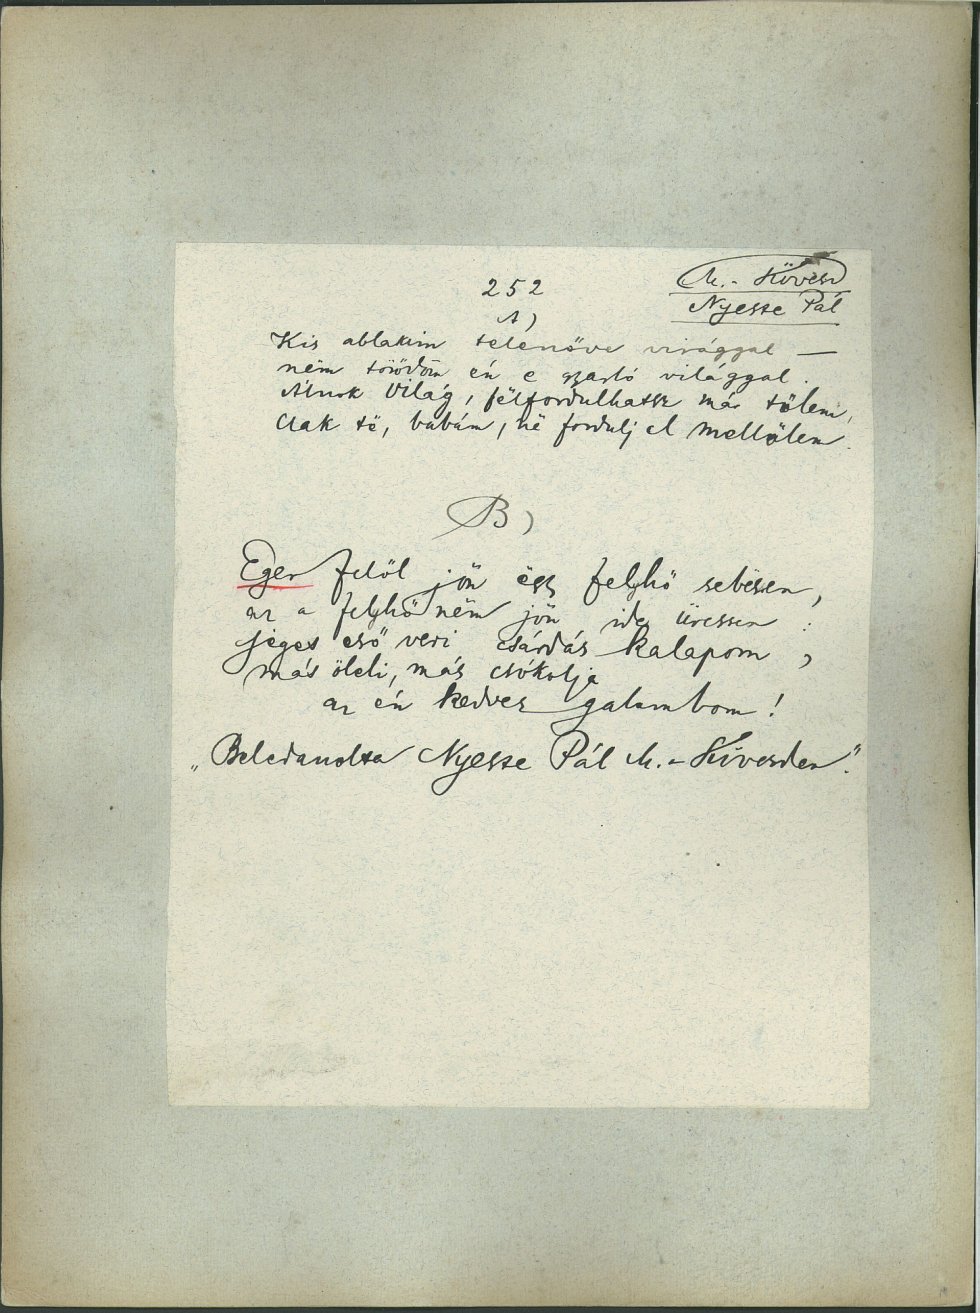 252
M.- Kövesd
Nyeste Pál
A)
Kis ablakim telenőve virággal —
ném törődöm én e gzarló világgal.
Álnok Világ, félfordulhatsz már tőlem,
Csak të, babám, në fordulj el mellőlem.
B)
Eger felöl jön ëgy felyhő sebëssen,
az a felyhő ném jön ide üressen :
jéges eső veri csárdás kalapom,
más öleli, más csókolja
az én kedves galambom!
„Beledanolta Nyeste Pál M.-Kövesden."